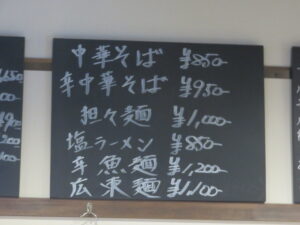 中華そば ¥850
辛中華そば ¥950
担々麺 ¥1,000
塩ラーメン ¥850
辛魚麺 ¥1,200
広東麺 ¥1,100